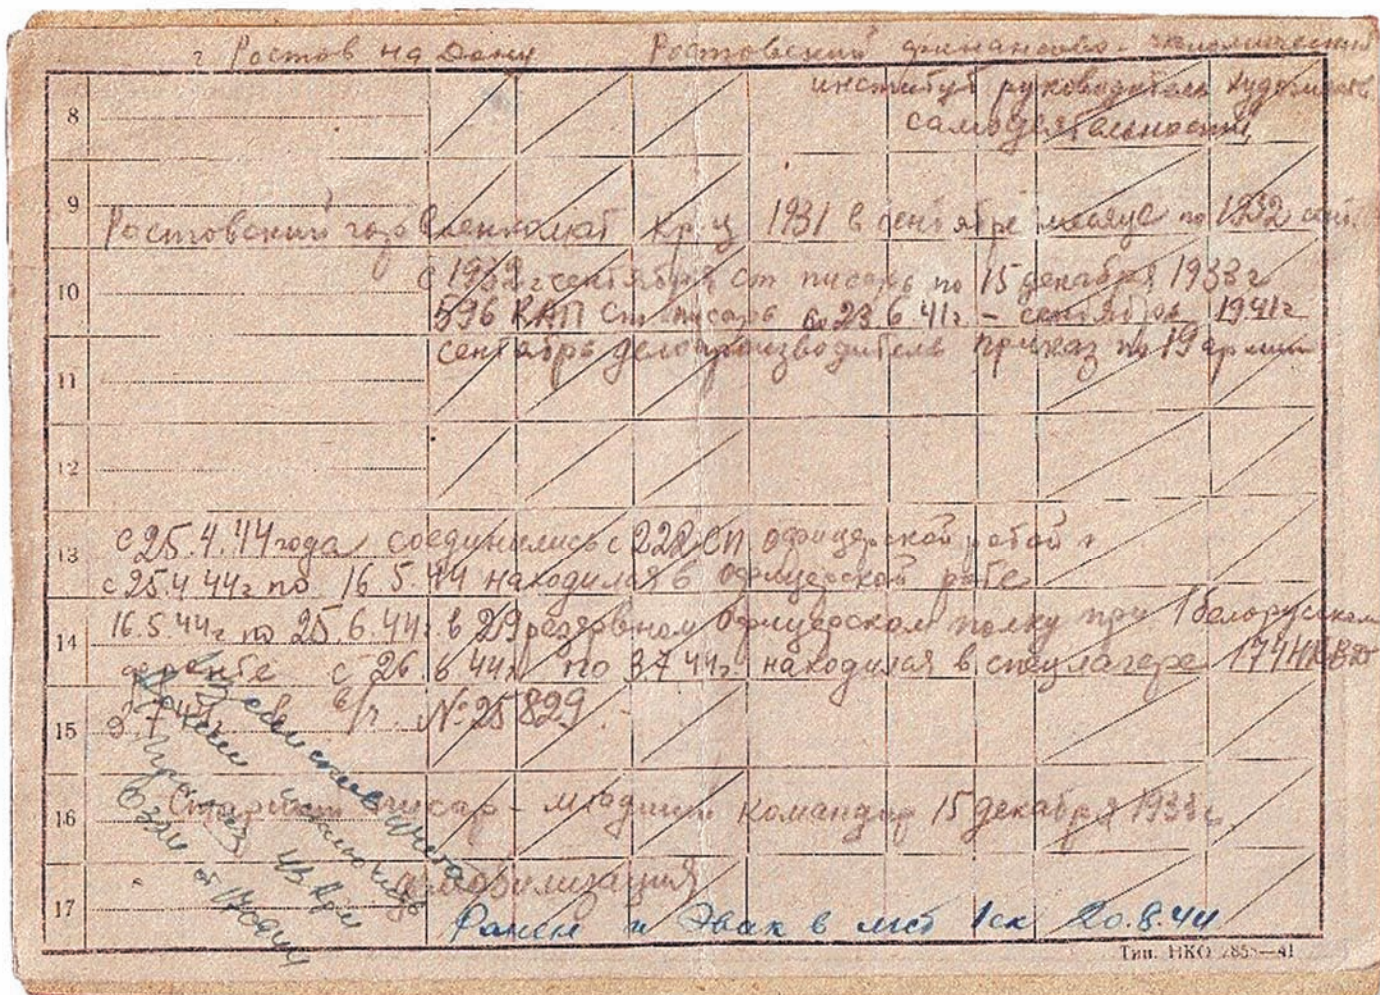 г Ростов на Дону Ростовский финансово-экономический
институт руководитель художеств
самодеятельности
8
9
Ростовский гор военкомат 1931 в сентябре месяце по 1932 сент.
10
с 1932 г сентября ст писарь по 15 декабря 1933 г
596 КАП Ст писарь 23.6.41г - сентябрь 1941г
сентябрь делопроизводитель приказ по 19 армии
11
12
с 25.4.44 года соединились с 222 СП офицерской ротой
13
с 25.4.44г по 16.5.44 находился в офицерской роте
16.5.44г по 25.6.44г. в 29 резервном офицерском полку при 1 белорусском
14
фронте с 26.6.44г по 3.7.44г. находился в спецлагере 174 НКВД
15
в/ч. № 25829
16
Старший писар - младший командир 15 декабря 1933г.
демобилизация
17
Ранен и Эвак в 20.8.44
Тип. НКО —41